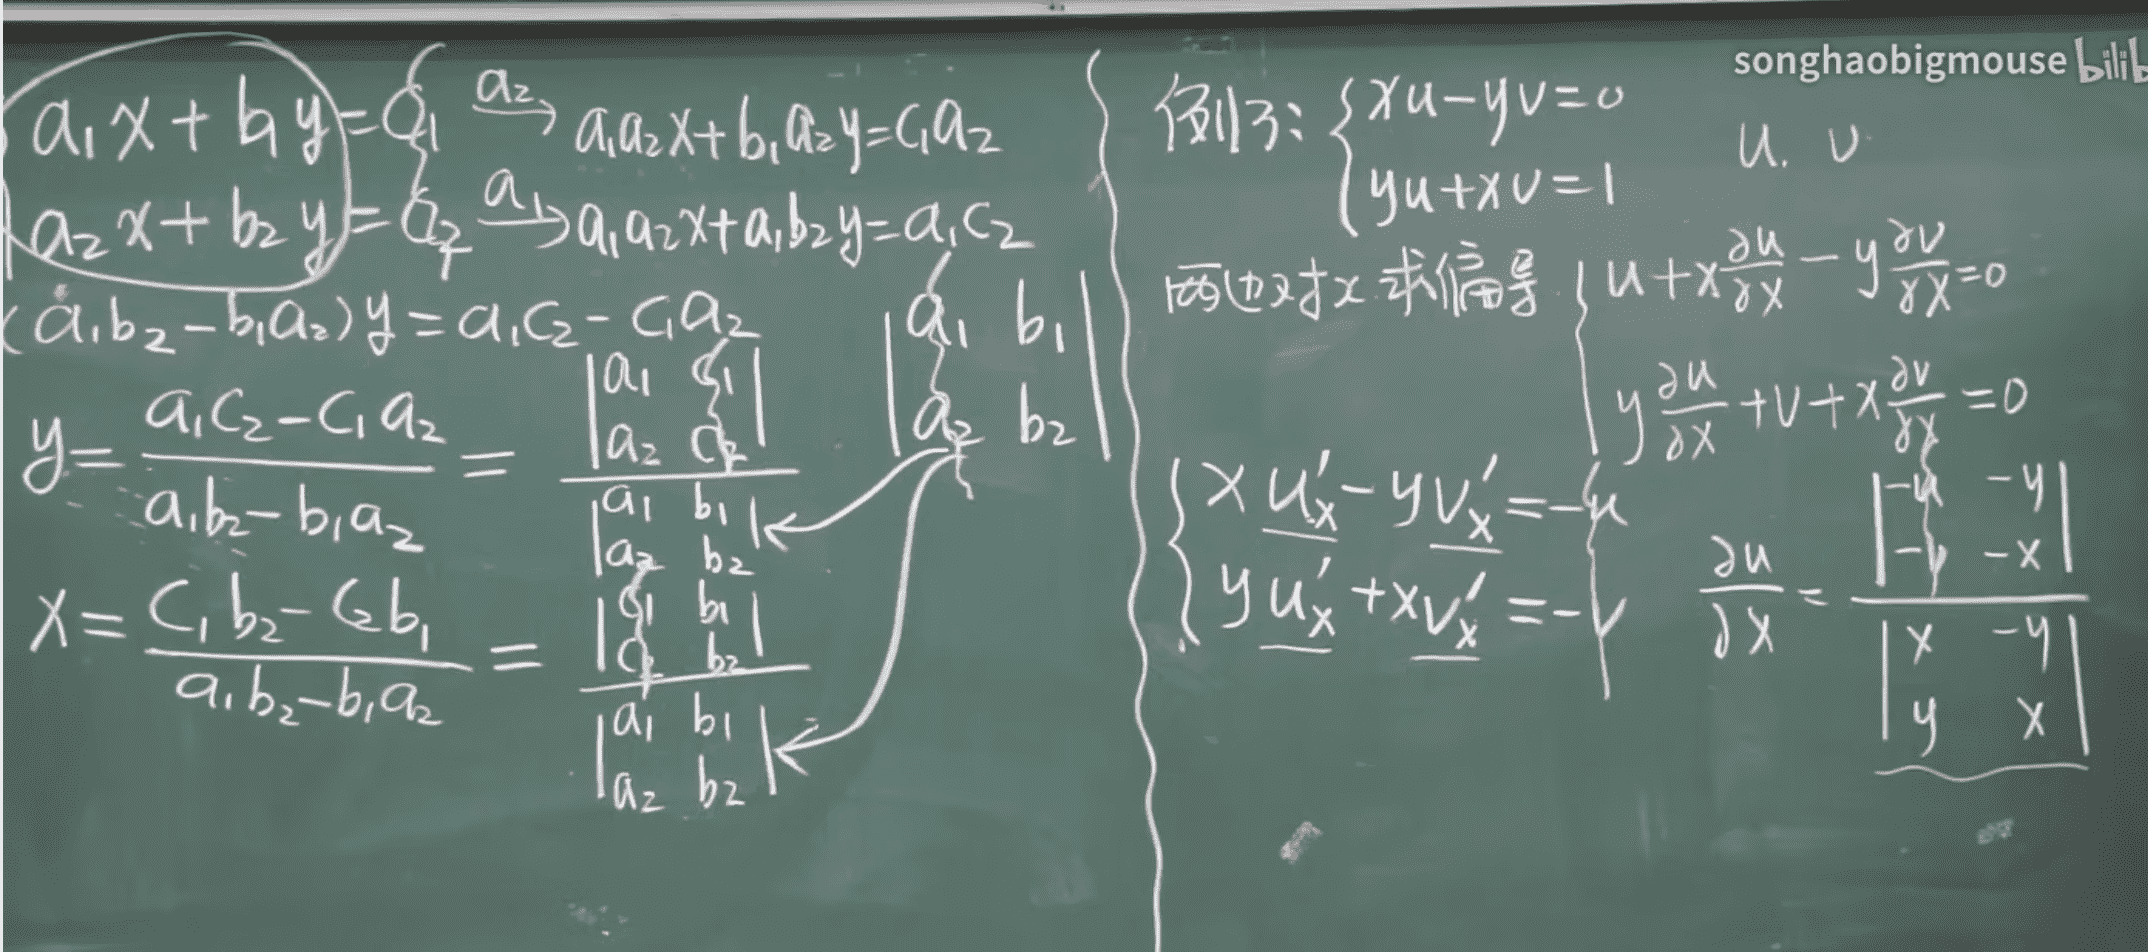 songhaobigmouse bilib
a₁x+b₁y=c₁ a₂→ a₁a₂x+b₁a₂y=c₁a₂
a₂x+b₂y=c₂ a₁→ a₁a₂x+a₁b₂y=a₁c₂
(a₁b₂-b₁a₂)y=a₁c₂-c₁a₂
|a₁ b₁|
|a₂ b₂|
y=(a₁c₂-c₁a₂)/(a₁b₂-b₁a₂)=|a₁ c₁; a₂ c₂|/|a₁ b₁; a₂ b₂|
x=(c₁b₂-c₂b₁)/(a₁b₂-b₁a₂)=|c₁ b₁; c₂ b₂|/|a₁ b₁; a₂ b₂|
例3: {xu-yv=0
yu+xv=1
u. v
两边对x求偏导 {u+x∂u/∂x-y∂v/∂x=0
y∂u/∂x+v+x∂v/∂x=0
{xu'ₓ-yv'ₓ=-u
yu'ₓ+xv'ₓ=-v
∂u/∂x=|-u -y; -v -x|/|x -y; y x|